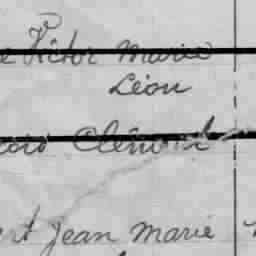 Victor Marie
Léon
Clément
Jean Marie